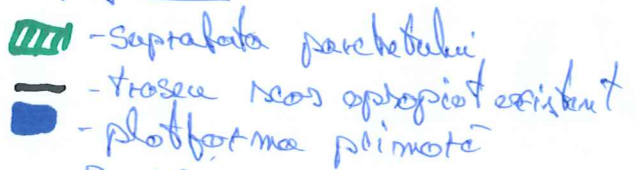 - suprafata parchetului
- traseu scos apropiat existent
- platforma primară